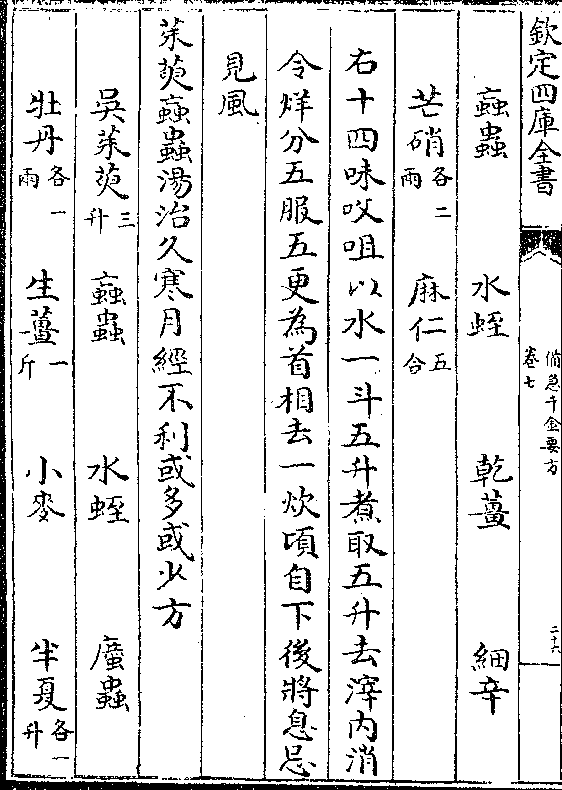 欽定四庫全書
備急千金要方
卷七
二十六
蝱蟲 水蛭 乾薑 細辛
芒硝各二兩 麻仁五合
右十四味㕮咀以水一斗五升煮取五升去滓内消
令烊分五服五更為首相去一炊頃自下後將息忌
見風
茱萸蝱蟲湯治久寒月經不利或多或少方
吳茱萸三升 蝱蟲 水蛭 䗪蟲
牡丹各一兩 生薑一斤 小麥 半夏各一升